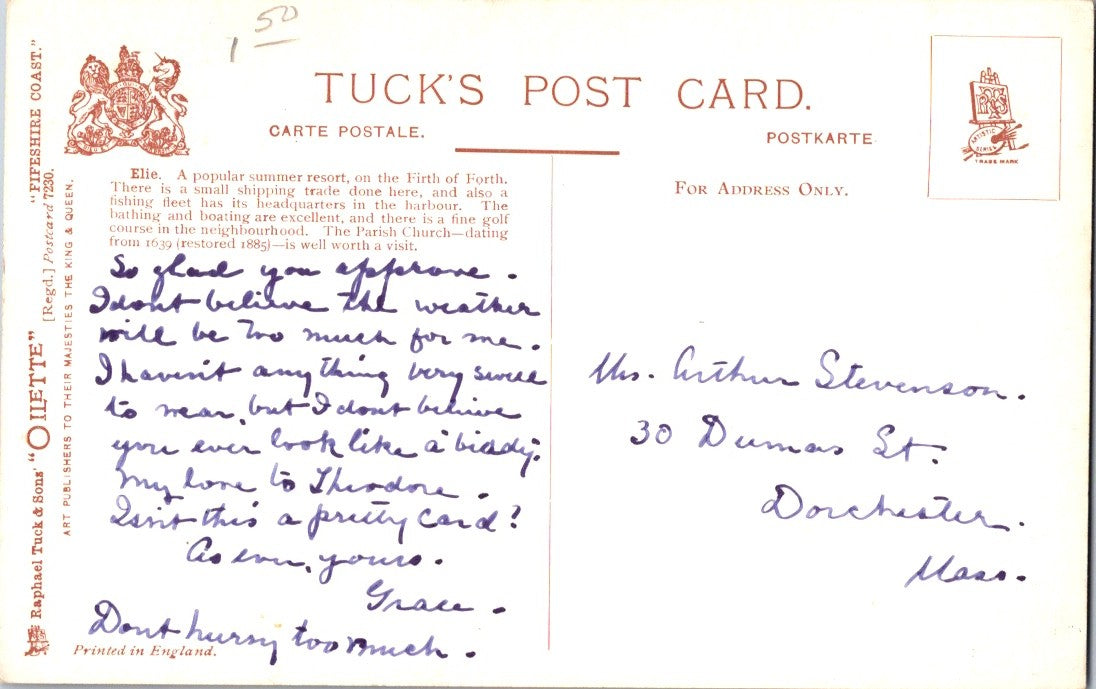 1 50
TUCK'S POST CARD.
CARTE POSTALE.
POSTKARTE
FOR ADDRESS ONLY.
ARTISTIC SERIES
TRADE MARK
"FIFESHIRE COAST."
[Regd.] Postcard 7230.
Raphael Tuck & Sons' "OILETTE"
ART PUBLISHERS TO THEIR MAJESTIES THE KING & QUEEN.
Elie. A popular summer resort, on the Firth of Forth.
There is a small shipping trade done here, and also a
fishing fleet has its headquarters in the harbour. The
bathing and boating are excellent, and there is a fine golf
course in the neighbourhood. The Parish Church—dating
from 1639 (restored 1885)—is well worth a visit.
So glad you approve.
I dont believe the weather
will be too much for me.
I haven't anything very swell
to wear, but I dont believe
you ever look like a "biddy".
My love to Theodore.
Isn't this a pretty card?
As ever, yours.
Grace.
Dont hurry too much.
Printed in England.
Mrs. Arthur Stevenson.
30 Dumas St.
Dorchester.
Mass.